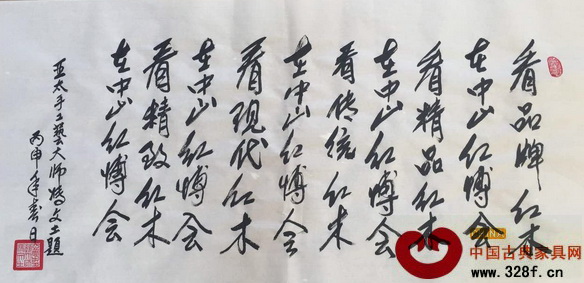 看品牌红木
在中山红博会
看精品红木
在中山红博会
看传统红木
在中山红博会
看现代红木
在中山红博会
看精致红木
在中山红博会
亚太手工艺大师冯文土题
丙申年春日
中国古典家具网
www.328f.cn